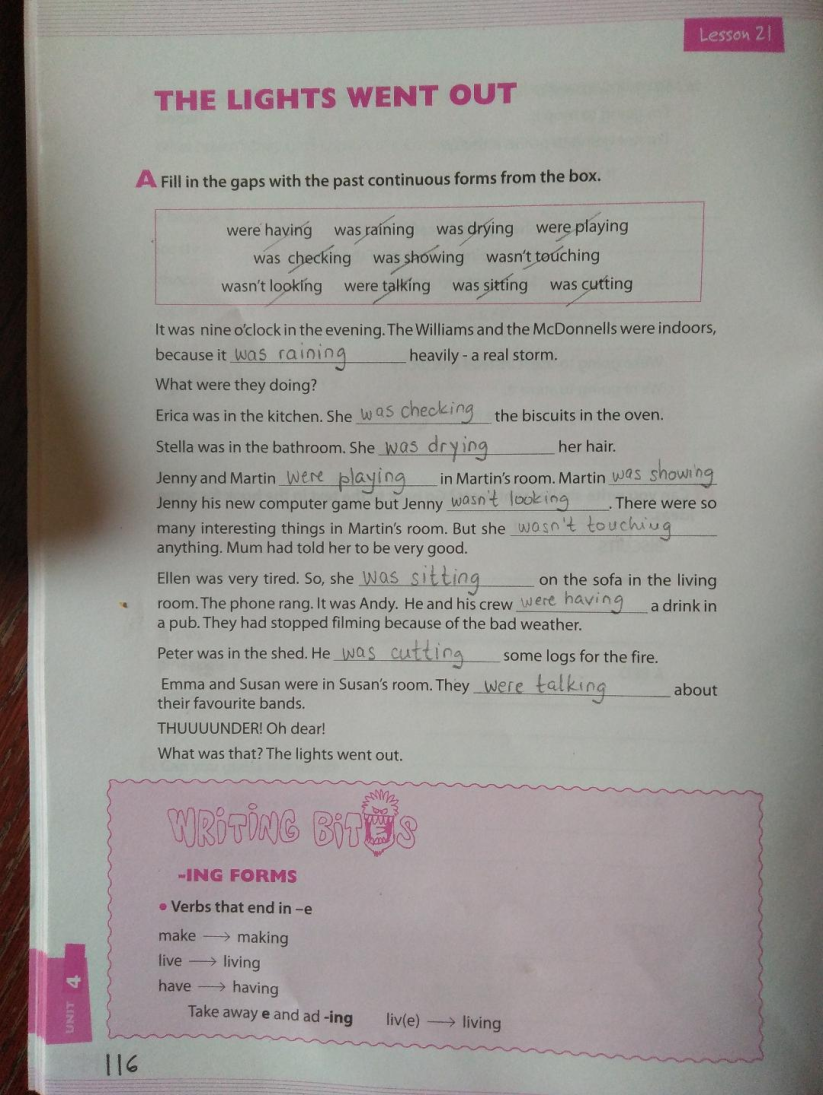 Lesson 21
THE LIGHTS WENT OUT
A Fill in the gaps with the past continuous forms from the box.
were having was raining was drying were playing
was checking was showing wasn't touching
wasn't looking were talking was sitting was cutting
It was nine o'clock in the evening. The Williams and the McDonnells were indoors,
because it was raining heavily - a real storm.
What were they doing?
Erica was in the kitchen. She was checking the biscuits in the oven.
Stella was in the bathroom. She was drying her hair.
Jenny and Martin were playing in Martin's room. Martin was showing
Jenny his new computer game but Jenny wasn't looking. There were so
many interesting things in Martin's room. But she wasn't touching
anything. Mum had told her to be very good.
Ellen was very tired. So, she was sitting on the sofa in the living
room. The phone rang. It was Andy. He and his crew were having a drink in
a pub. They had stopped filming because of the bad weather.
Peter was in the shed. He was cutting some logs for the fire.
Emma and Susan were in Susan's room. They were talking about
their favourite bands.
THUUUUNDER! Oh dear!
What was that? The lights went out.
WRITING BITES
-ING FORMS
• Verbs that end in –e
make → making
live → living
have → having
Take away e and ad -ing liv(e) → living
UNIT 4
116